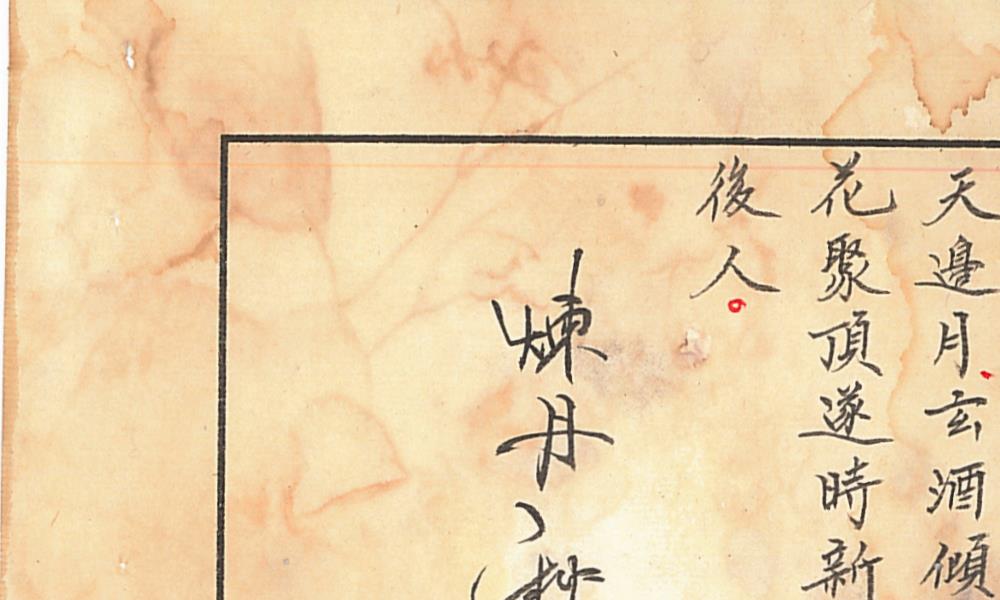 天邊月玄酒傾
花聚頂遂時新
後人
煉丹